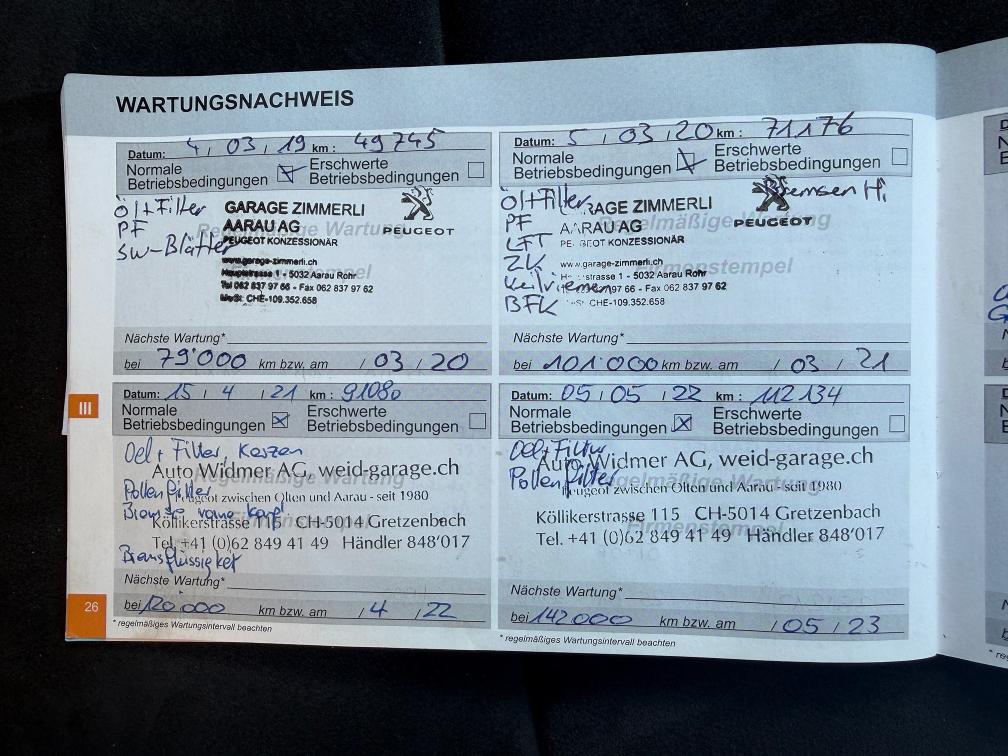 WARTUNGSNACHWEIS
Datum: 4 / 03 / 19 km : 49745
Normale Betriebsbedingungen
Erschwerte Betriebsbedingungen
Öl+Filter
PF
SW-Blätter
Regelmäßige Wartung
Firmenstempel
GARAGE ZIMMERLI
AARAU AG
PEUGEOT KONZESSIONÄR
www.garage-zimmerli.ch
Hauptstrasse 1 - 5032 Aarau Rohr
Tel 062 837 97 66 - Fax 062 837 97 62
MwSt: CHE-109.352.658
PEUGEOT
Nächste Wartung*
bei 79'000 km bzw. am / 03 / 20
Datum: 5 / 03 / 20 km : 71176
Normale Betriebsbedingungen
Erschwerte Betriebsbedingungen
Öl+Filter
PF
LFT
ZK
Keilriemen
BFK
Bremsen Hi
Regelmäßige Wartung
Firmenstempel
RAGE ZIMMERLI
AARAU AG
PEUGEOT KONZESSIONÄR
www.garage-zimmerli.ch
strasse 1 - 5032 Aarau Rohr
97 66 - Fax 062 837 97 62
CHE-109.352.658
PEUGEOT
Nächste Wartung*
bei 101'000 km bzw. am / 03 / 21
III
Datum: 15 / 4 / 21 km : 91080
Normale Betriebsbedingungen
Erschwerte Betriebsbedingungen
Oel + Filter, Kerzen
Auto Widmer AG, weid-garage.ch
Pollenfilter
Peugeot zwischen Olten und Aarau - seit 1980
Köllikerstrasse 115 CH-5014 Gretzenbach
Tel. +41 (0)62 849 41 49 Händler 848'017
Nächste Wartung*
bei 120'000 km bzw. am / 4 / 22
* regelmäßiges Wartungsintervall beachten
Datum: 05 / 05 / 22 km : 112134
Normale Betriebsbedingungen
Erschwerte Betriebsbedingungen
Oel+Filter
Auto Widmer AG, weid-garage.ch
Pollenfilter
Peugeot zwischen Olten und Aarau - seit 1980
Köllikerstrasse 115 CH-5014 Gretzenbach
Tel. +41 (0)62 849 41 49 Händler 848'017
Nächste Wartung*
bei 142000 km bzw. am / 05 / 23
* regelmäßiges Wartungsintervall beachten
26